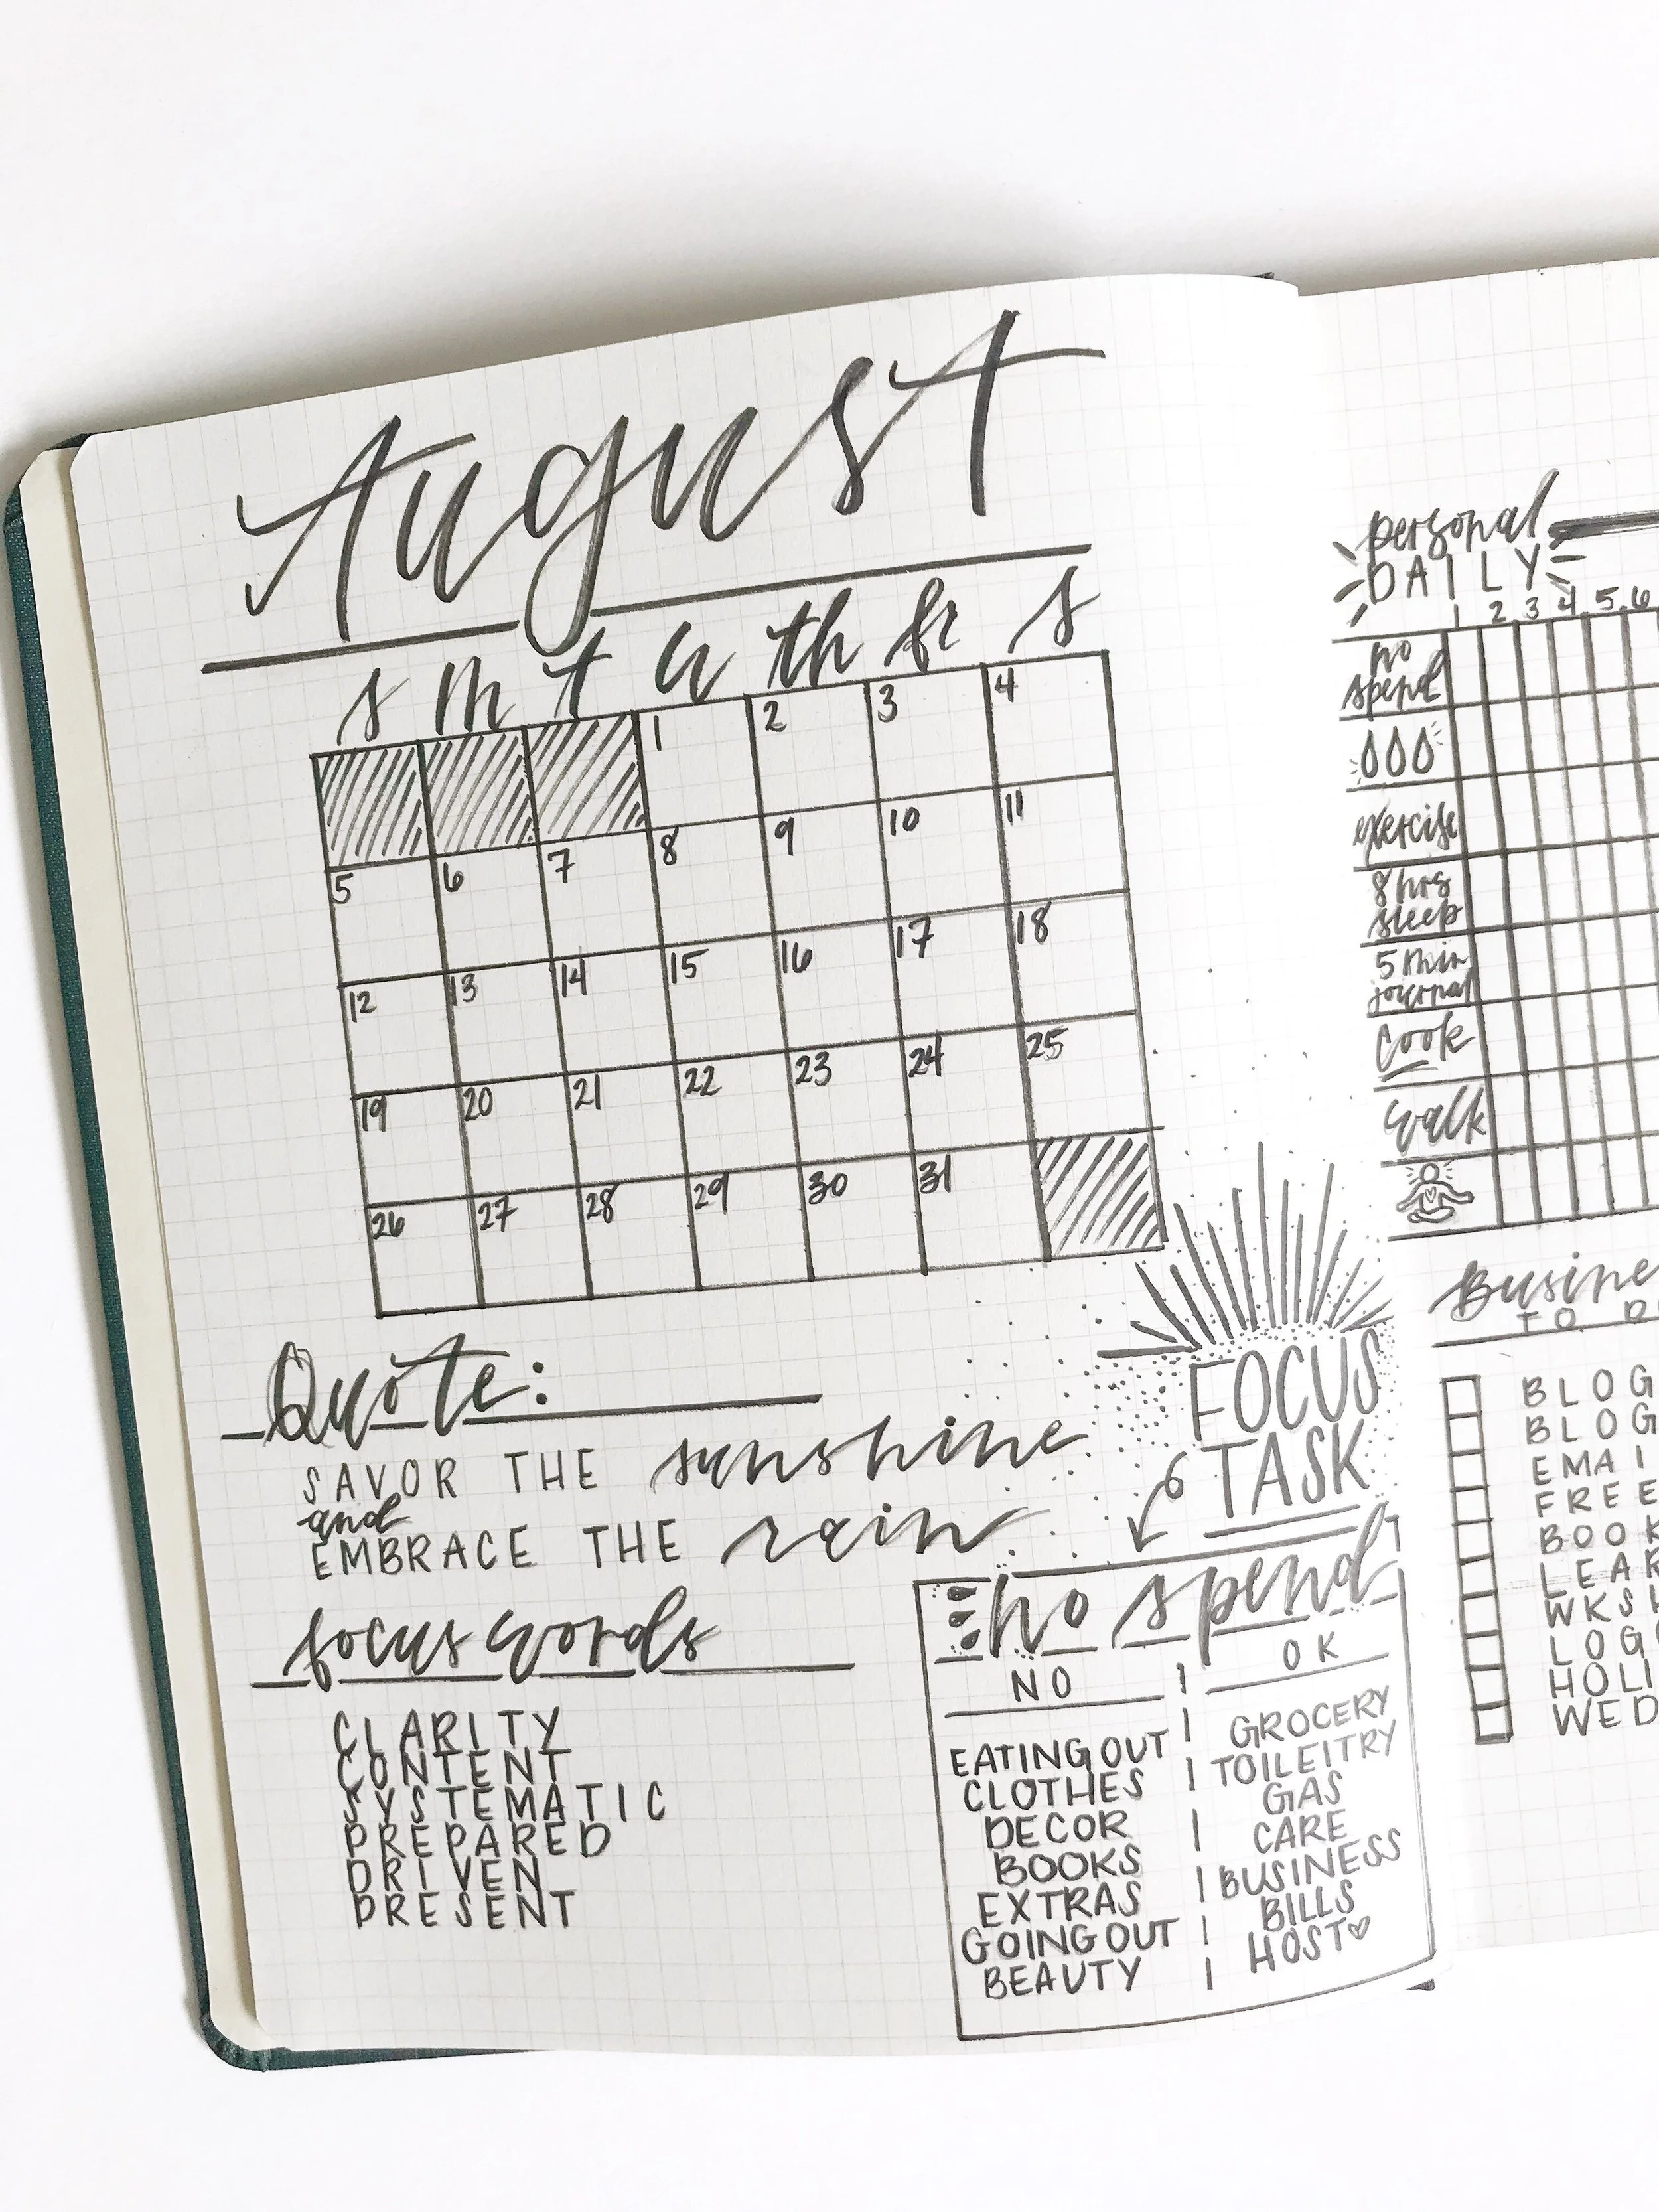 August
s m t w th fr s
1 2 3 4
5 6 7 8 9 10 11
12 13 14 15 16 17 18
19 20 21 22 23 24 25
26 27 28 29 30 31
Quote:
SAVOR THE sunshine
and
EMBRACE THE rain
focus words
CLARITY
CONTENT
SYSTEMATIC
PREPARED
DRIVEN
PRESENT
FOCUS
TASK
no spend
NO
EATING OUT
CLOTHES
DECOR
BOOKS
EXTRAS
GOING OUT
BEAUTY
OK
GROCERY
TOILEITRY
GAS
CARE
BUSINESS
BILLS
HOST
personal
DAILY
1 2 3 4 5 6
no
spend
exercise
8 hrs
sleep
5 min
journal
cook
walk
Busine
TO D
BLOG
BLOG
EMAI
FREE
BOOK
LEAR
WKSH
LOGO
HOLI
WED